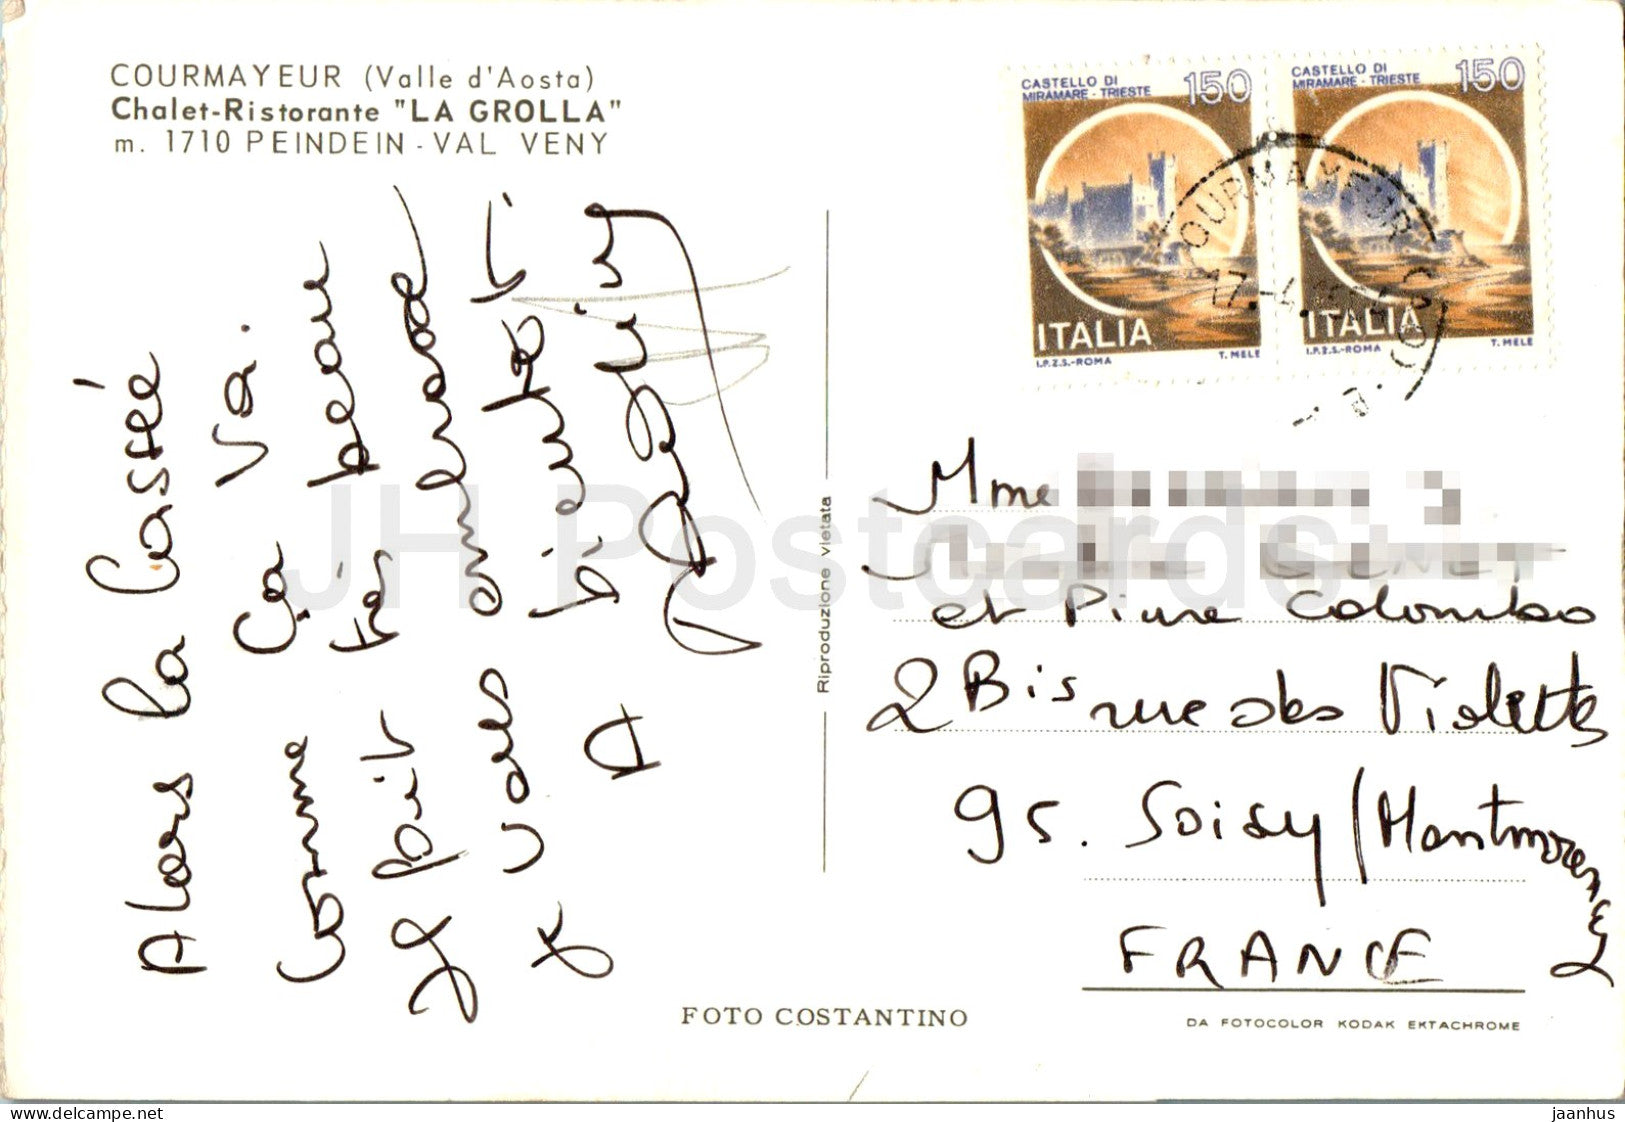 COURMAYEUR (Valle d'Aosta)
Chalet-Ristorante "LA GROLLA"
m. 1710 PEINDEIN - VAL VENY
CASTELLO DI
MIRAMARE - TRIESTE
150
ITALIA
I.P.Z.S.-ROMA
T. MELE
CASTELLO DI
MIRAMARE - TRIESTE
150
ITALIA
I.P.Z.S.-ROMA
T. MELE
COURMAYEUR
17.-4.
Alors la Cassée
Comme ça va.
Il fait très beau
je vous embrasse
A bientôt
Riproduzione vietata
Mme
et Pierre Colombo
2 Bis rue des Violettes
95. Soisy/Montmorency
FRANCE
FOTO COSTANTINO
DA FOTOCOLOR KODAK EKTACHROME
JH Postcards
www.delcampe.net
jaanhus